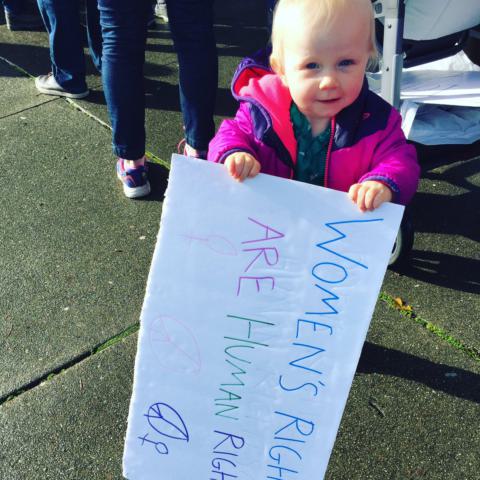 WOMEN'S RIGH
ARE HUMAN RIGH